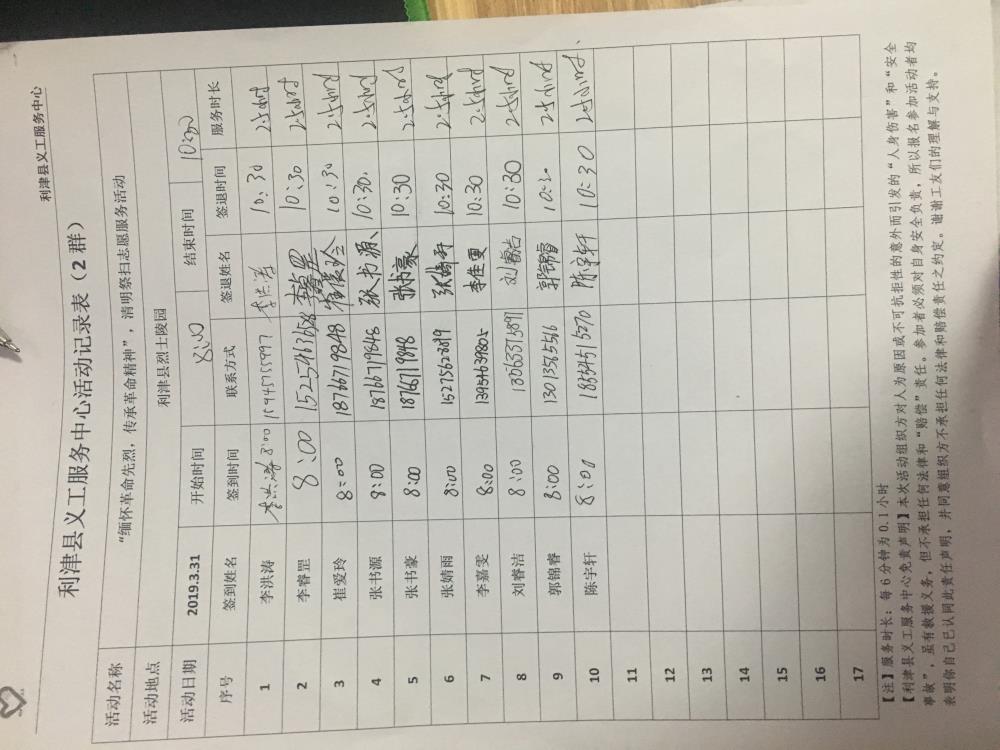 利津县义工服务中心
利津县义工服务中心活动记录表（2 群）
活动名称 “缅怀革命先烈，传承革命精神”，清明祭扫志愿服务活动
活动地点 利津县烈士陵园
活动日期 2019.3.31 开始时间 8:00 结束时间 10:30
序号 签到姓名 签到时间 联系方式 签退姓名 签退时间 服务时长
1 李洪涛 李洪涛 8:00 李洪涛 10:30
2 李睿罡 8:00 李睿罡 10:30
3 崔爱玲 8:00 18766719848 崔爱玲 10:30
4 张书源 8:00 18766719848 张书源 10:30
5 张书豪 8:00 18766719848 张书豪 10:30
6 张婧雨 8:00 15275622819 张婧雨 10:30
7 李嘉雯 8:00 13954639805 李佳雯 10:30
8 刘睿洁 8:00 刘睿洁 10:30
9 郭锦睿 8:00 13013585516 郭锦睿 10:30
10 陈宇轩 8:00 18554515270 陈宇轩 10:30
11
12
13
14
15
16
17
【注】服务时长：每 6 分钟为 0.1 小时
【利津县义工服务中心免责声明】本次活动组织方对人为原因或不可抗拒性的意外而引发的“人身伤害”和“安全
事故”，虽有救援义务，但不承担任何法律和“赔偿”责任。参加者必须对自身安全负责，所以报名参加活动者均
表明你自己已认同此责任声明，并同意组织方不承担任何法律和赔偿责任之约定。谢谢工友们的理解与支持。